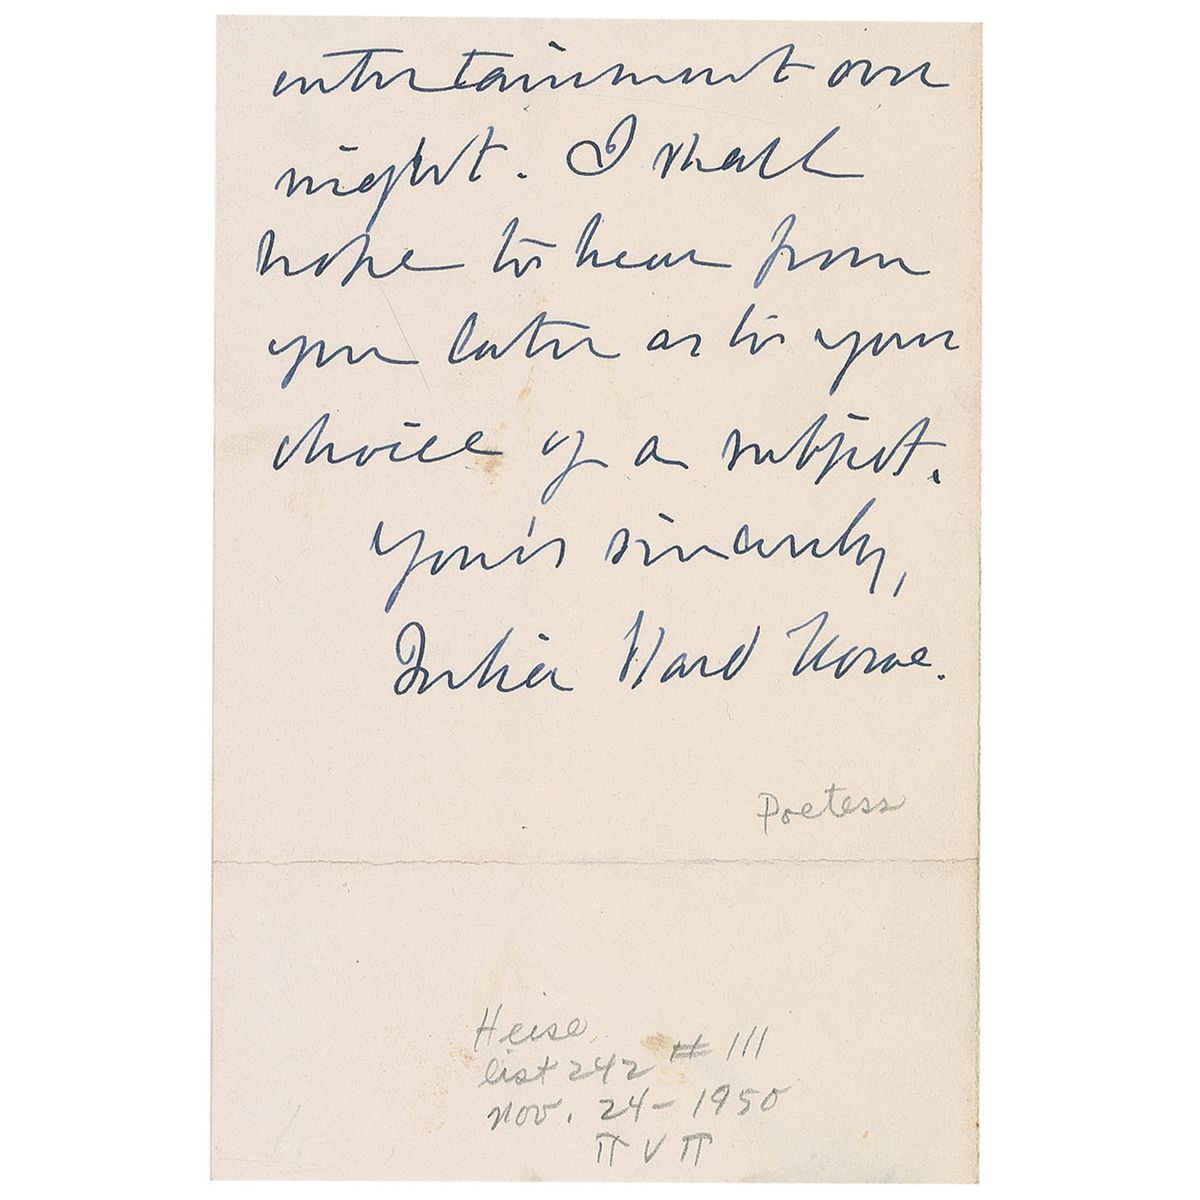 entertainment over
night. I shall
hope to hear from
you later as to your
choice of a subject.
Yours sincerely,
Julia Ward Howe.
Poetess
Heise
list 242 # 111
Nov. 24-1950
π v π